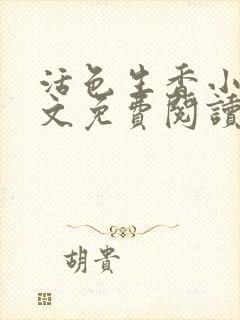 活色生香小
文免費閱讀
胡貴